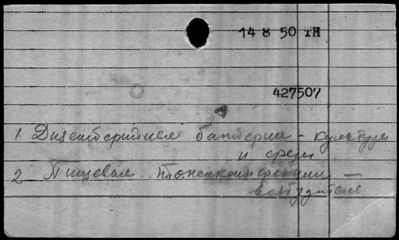 14 8 50 ТН
427507
1 Дизентерийные бактерии - культура
и среды
2 Пищевые токсикоинфекции -
возбудители